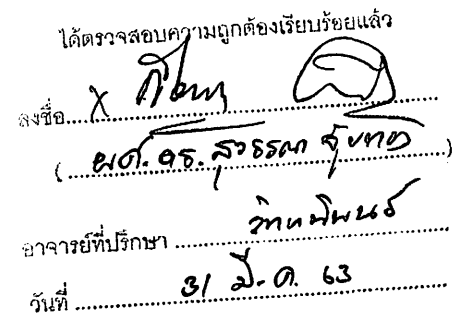 ได้ตรวจสอบความถูกต้องเรียบร้อยแล้ว
ลงชื่อ
(ผศ.ดร.สุวรรณา)
อาจารย์ที่ปรึกษา วิทยานิพนธ์
วันที่ 31 มี.ค. 63